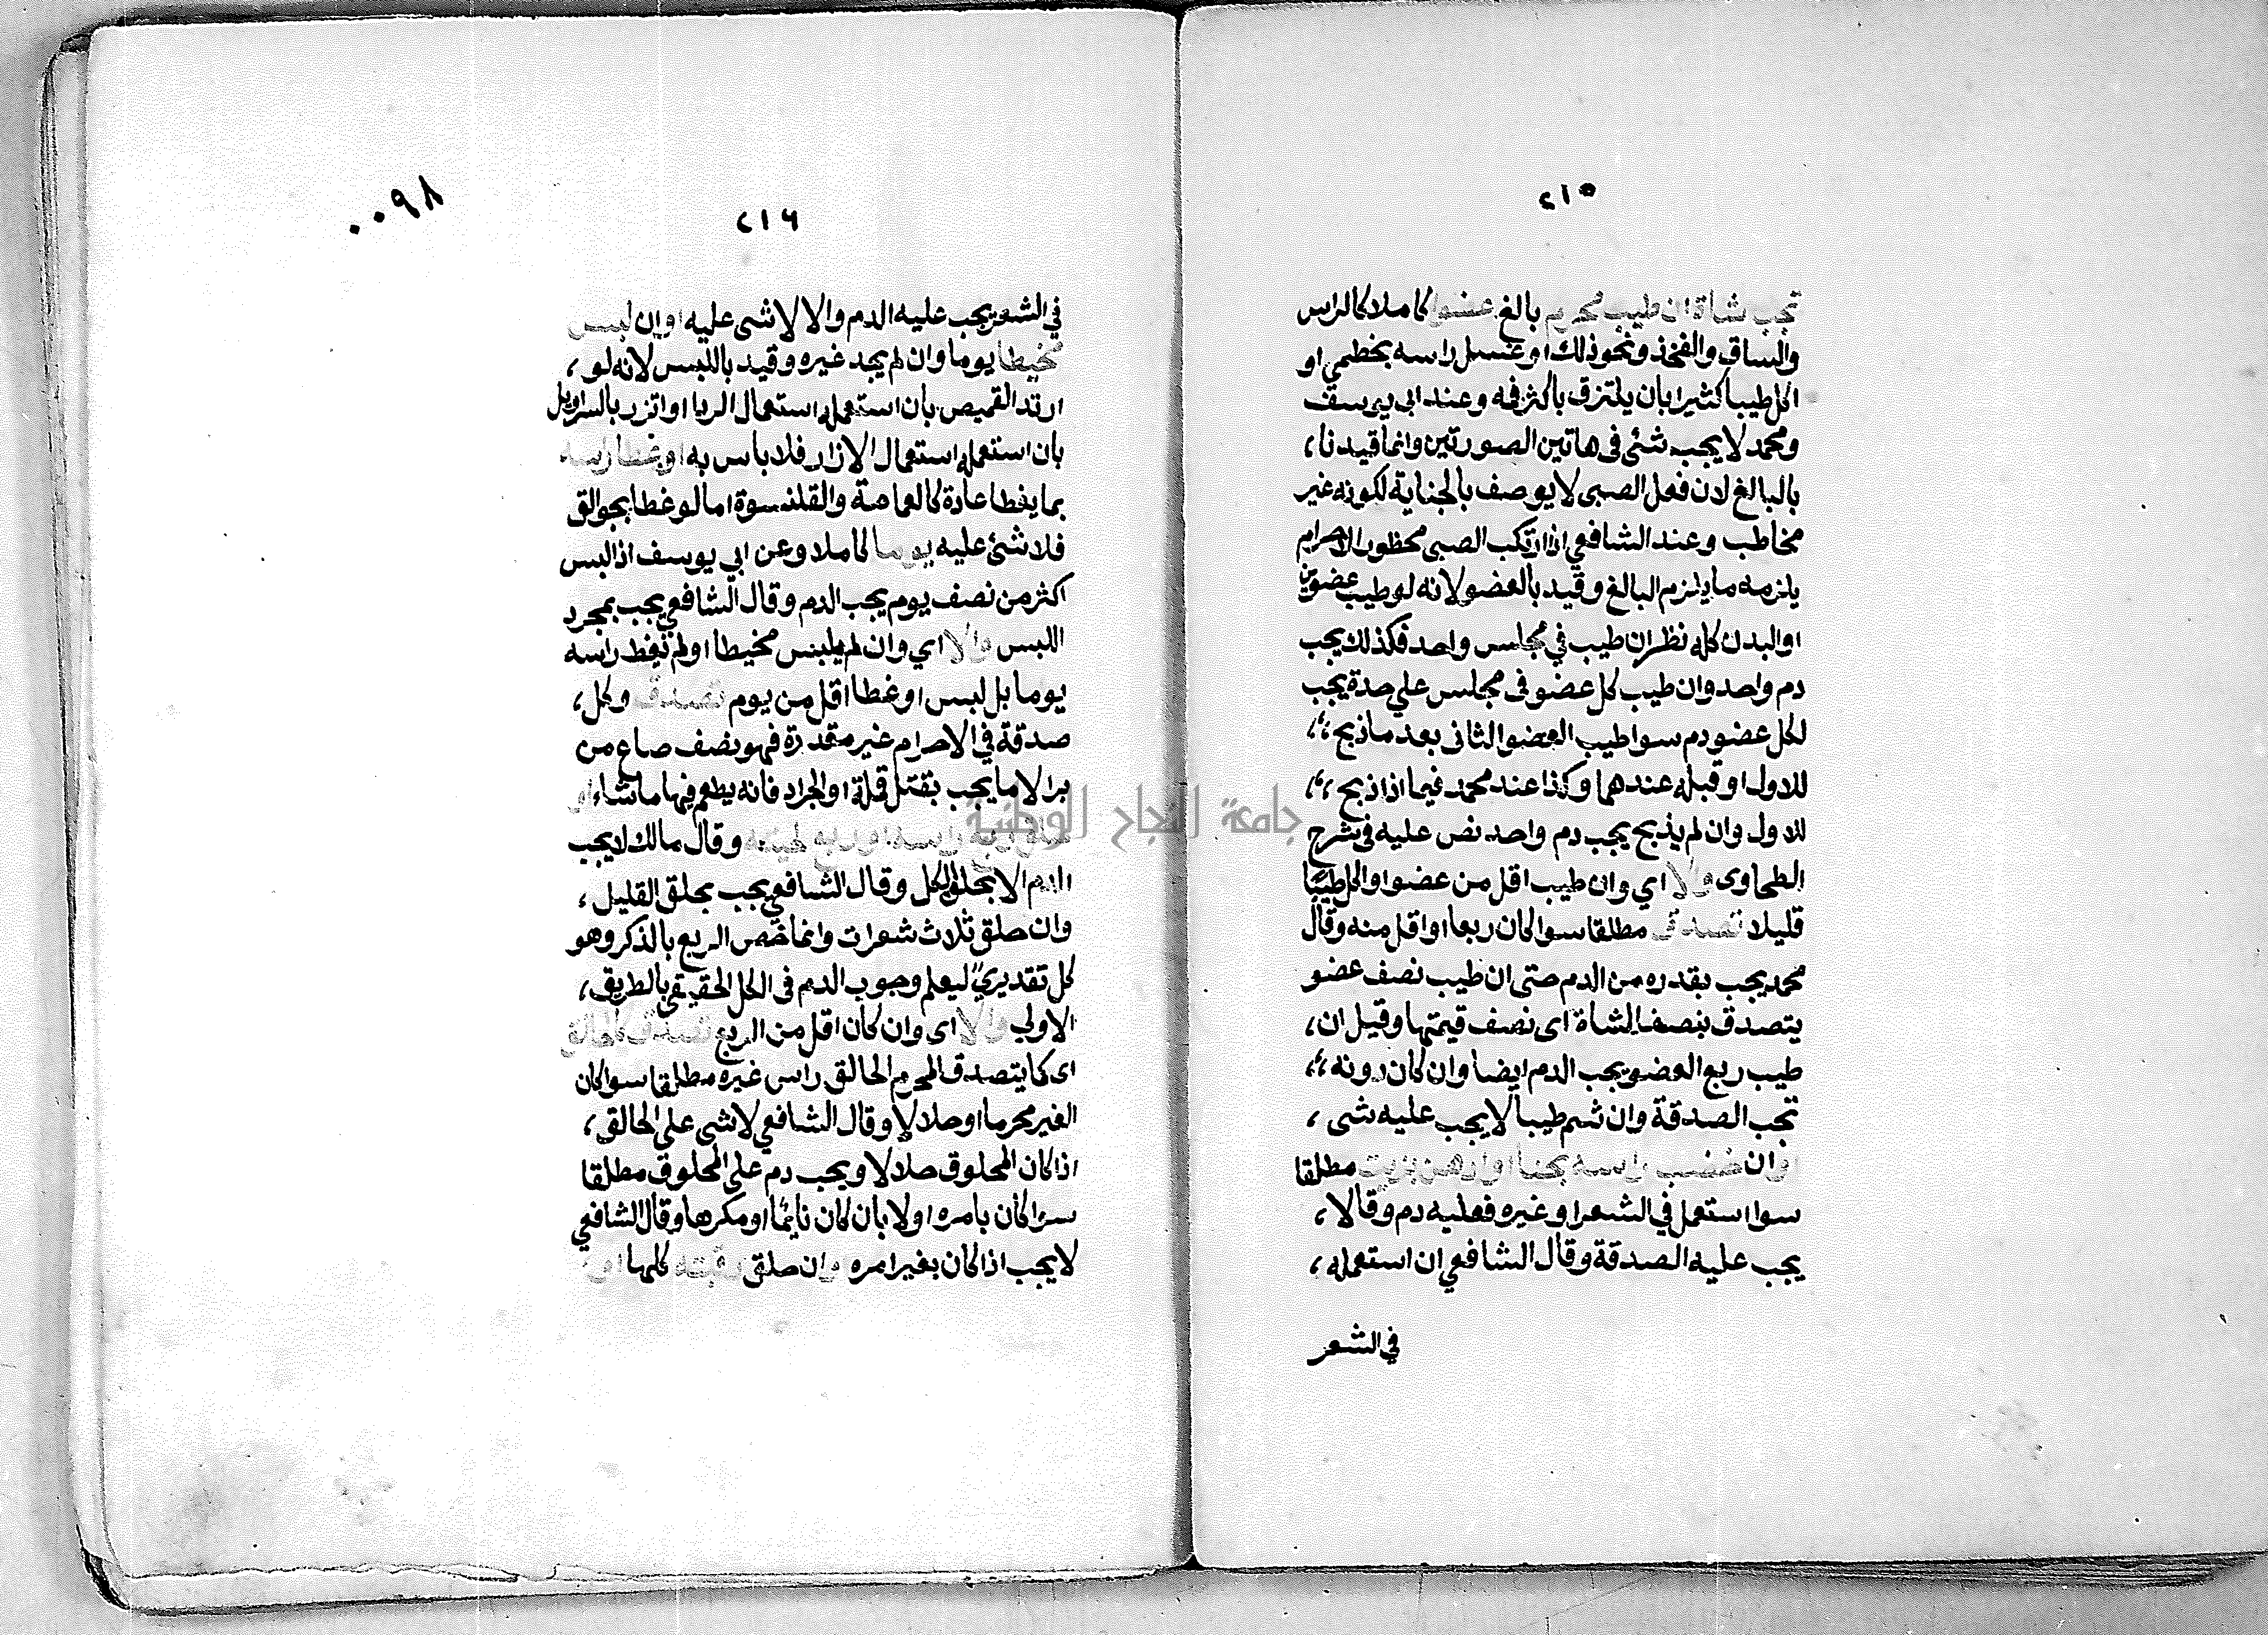 ٢١٥
تجب شاة ان طيب محرم بالغ عضوا كاملا كالراس
والساق والفخذ ونحو ذلك او غسل راسه بخطمي او
اكل طيبا كثيرا بان يلتزق باكثر فمه وعند ابي يوسف
ومحمد لا يجب شئ في هاتين الصورتين وانما قيدنا،
بالبالغ لان فعل الصبى لا يوصف بالجناية لكونه غير
مخاطب وعند الشافعي اذا ارتكب الصبى محظور الاحرام
يلزمه ما يلزم البالغ وقيد بالعضو لانه لو طيب عضوين
او البدن كله نظر ان طيب في مجلس واحد فكذلك يجب
دم واحد وان طيب كل عضو في مجلس على حدة يجب
لكل عضو دم سوا طيب العضو الثانى بعد ما ذبح،،
للاول او قبله عندهما وكذا عند محمد فيما اذا ذبح،،
للاول وان لم يذبح يجب دم واحد نص عليه في شرح
الطحاوى والا اي وان طيب اقل من عضو او اكل طيبًا
قليلا تصدق مطلقا سوا كان ربعا او اقل منه وقال
محمد يجب بقدره من الدم حتى ان طيب نصف عضو
يتصدق بنصف الشاة اى نصف قيمتها وقيل ان،
طيب ربع العضو يجب الدم ايضا وان كان دونه،،
تجب الصدقة وان شم طيبا لا يجب عليه شى،
او ان خضب راسه بحنا او ادهن بزيت مطلقا
سوا استعمل في الشعر او غيره فعليه دم وقالا،
يجب عليه الصدقة وقال الشافعي ان استعمله،
في الشعر
٠٠٩٨
٢١٦
في الشعر يجب عليه الدم والا لا شى عليه او ان لبس
مخيطا يوما وان لم يجد غيره وقيد باللبس لانه لو،
ارتد القميص بان استعمله استعمال الردا او اتزر بالسراويل
بان استعمله استعمال الازار فلا باس به او غطا راسه
بما يغطا عادة كالعمامة والقلنسوة اما لو غطا بجوالق
فلا شئ عليه يوما كاملا وعن ابي يوسف اذا لبس
اكثر من نصف يوم يجب الدم وقال الشافعي يجب بمجرد
اللبس والا اي وان لم يلبس مخيطا او لم تغط راسه
يوما بل لبس او غطا اقل من يوم تصدق وكل،
صدقة في الاحرام غير مقدرة فهو نصف صاع من
بر الا ما يجب بقتل قملة او الجراد فانه يطعم فيها ما شاء او
حلق ربع راسه او ربع لحيته وقال مالك لا يجب
الدم الا بحلق الكل وقال الشافعي يجب بحلق القليل،
وان حلق ثلاث شعرات وانما خص الربع بالذكر وهو
كل تقديري ليعلم وجوب الدم في الكل الحقيقي بالطريق،
الاولى والا اى وان كان اقل من الربع تصدق كالحالق
اى كما يتصدق المحرم الحالق راس غيره مطلقا سوا كان
الغير محرما او حلالا وقال الشافعي لا شى على الحالق،
اذا كان المحلوق حلالا ويجب دم على المحلوق مطلقا
سوا كان بامره او لا بان كان نايمًا او مكرها وقال الشافعي
لا يجب اذا كان بغير امره وان حلق رقبته كلها او
جامعة النجاح الوطنية